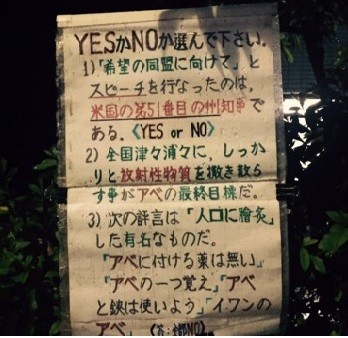 YESかNOか選んで下さい。
1)「希望の同盟に向けて」と
スピーチを行なったのは，
米国の第51番目の州知事で
ある。〈YES or NO〉
2) 全国津々浦々に，しっか
りと放射性物質を撒き散ら
す事がアベの最終目標だ。
3) 次の諺言は「人口に膾炙」
した有名なものだ。
「アベに付ける薬は無い」
「アベの一つ覚え」「アベ
と鋏は使いよう」「イワンの
アベ」